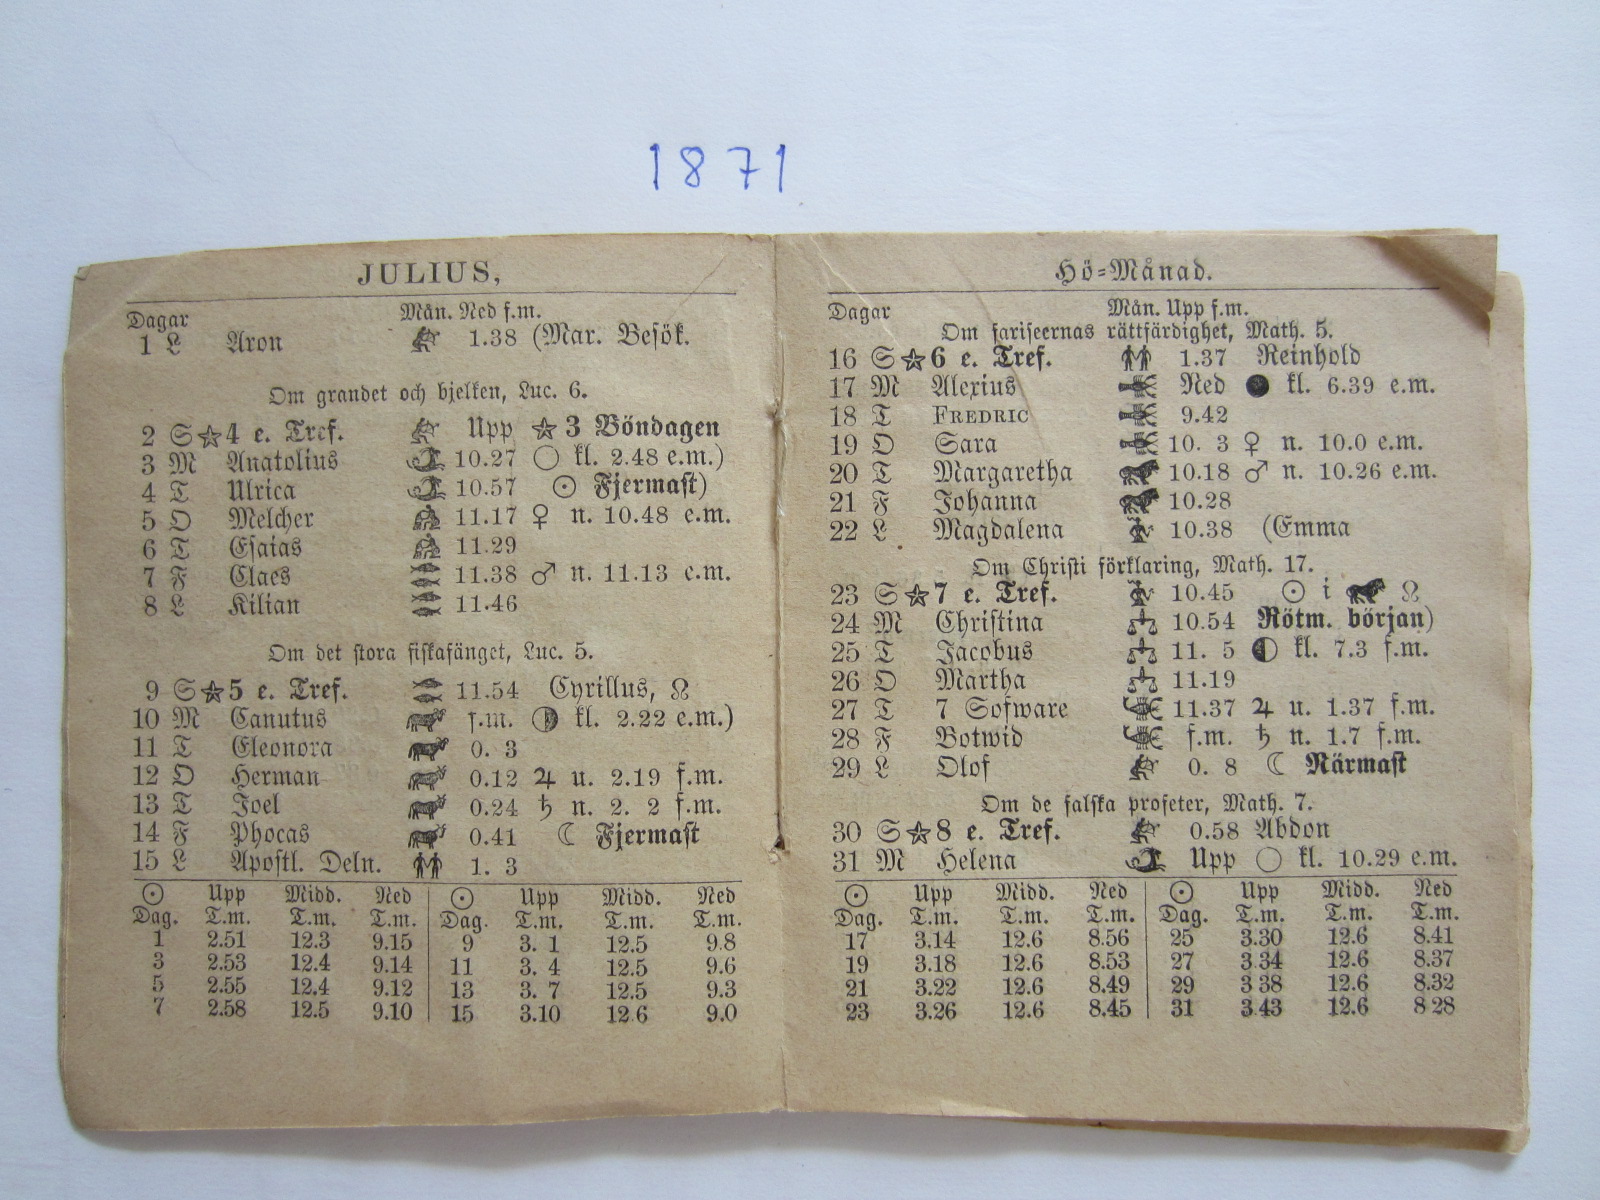 1871
JULIUS,
Dagar Mån. Ned f.m.
1 L Aron 1.38 (Mar. Besök.
Om grandet och bjelken, Luc. 6.
2 S ☆ 4 e. Tref. Upp ☆ 3 Böndagen
3 M Anatolius 10.27 ○ kl. 2.48 e.m.)
4 T Ulrica 10.57 ☉ Fjermast)
5 O Melcher 11.17 ♀ n. 10.48 e.m.
6 T Esaias 11.29
7 F Claes 11.38 ♂ n. 11.13 e.m.
8 L Kilian 11.46
Om det stora fiskafänget, Luc. 5.
9 S ☆ 5 e. Tref. 11.54 Cyrillus, ☊
10 M Canutus f.m. ◑ kl. 2.22 e.m.)
11 T Eleonora 0. 3
12 O Herman 0.12 ♃ u. 2.19 f.m.
13 T Joel 0.24 ♄ n. 2. 2 f.m.
14 F Phocas 0.41 ☾ Fjermast
15 L Apostl. Deln. 1. 3
☉ Upp Midd. Ned ☉ Upp Midd. Ned
Dag. T.m. T.m. T.m. Dag. T.m. T.m. T.m.
1 2.51 12.3 9.15 9 3. 1 12.5 9.8
3 2.53 12.4 9.14 11 3. 4 12.5 9.6
5 2.55 12.4 9.12 13 3. 7 12.5 9.3
7 2.58 12.5 9.10 15 3.10 12 6 9.0
Hö-Månad.
Dagar Mån. Upp f.m.
Om fariseernas rättfärdighet, Math. 5.
16 S ☆ 6 e. Tref. 1.37 Reinhold
17 M Alexius Ned ● kl. 6.39 e.m.
18 T FREDRIC 9.42
19 O Sara 10. 3 ♀ n. 10.0 e.m.
20 T Margaretha 10.18 ♂ n. 10.26 e.m.
21 F Johanna 10.28
22 L Magdalena 10.38 (Emma
Om Christi förklaring, Math. 17.
23 S ☆ 7 e. Tref. 10.45 ☉ i ☊
24 M Christina 10.54 Rötm. början)
25 T Jacobus 11. 5 ◐ kl. 7.3 f.m.
26 O Martha 11.19
27 T 7 Sofware 11.37 ♃ u. 1.37 f.m.
28 F Botwid f.m. ♄ n. 1.7 f.m.
29 L Olof 0. 8 ☾ Närmast
Om de falska profeter, Math. 7.
30 S ☆ 8 e. Tref. 0.58 Abdon
31 M Helena Upp ○ kl. 10.29 e.m.
☉ Upp Midd. Ned ☉ Upp Midd. Ned
Dag. T.m. T.m. T.m. Dag. T.m. T.m. T.m.
17 3.14 12.6 8.56 25 3.30 12.6 8.41
19 3.18 12.6 8.53 27 3 34 12.6 8.37
21 3.22 12.6 8.49 29 3 38 12.6 8.32
23 3.26 12.6 8.45 31 3.43 12.6 8 28